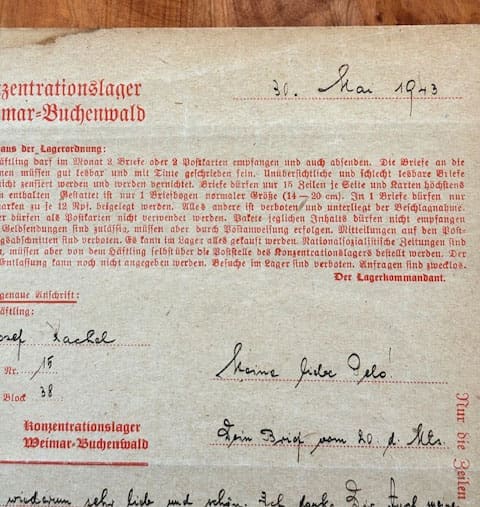 nzentrationslager
imar-Buchenwald
30. Mai 1943
aus der Lagerordnung:
äftling darf im Monat 2 Briefe oder 2 Postkarten empfangen und auch absenden. Die Briefe an die
nen müssen gut lesbar und mit Tinte geschrieben sein. Unübersichtliche und schlecht lesbare Briefe
icht zensiert werden und werden vernichtet. Briefe dürfen nur 15 Zeilen je Seite und Karten höchstens
n enthalten. Gestattet ist nur 1 Briefbogen normaler Größe (14×20 cm). In 1 Briefe dürfen nur
arken zu je 12 Rpf. beigelegt werden. Alles andere ist verboten und unterliegt der Beschlagnahme.
er dürfen als Postkarten nicht verwendet werden. Pakete jeglichen Inhalts dürfen nicht empfangen
Geldsendungen sind zulässig, müssen aber durch Postanweisung erfolgen. Mitteilungen auf den Post-
gsabschnitten sind verboten. Es kann im Lager alles gekauft werden. Nationalsozialistische Zeitungen sind
n, müssen aber von dem Häftling selbst über die Poststelle des Konzentrationslagers bestellt werden. Der
Entlassung kann noch nicht angegeben werden. Besuche im Lager sind verboten. Anfragen sind zwecklos.
Der Lagerkommandant.
genaue Anschrift:
äftling:
osef
Nr. 15
Block 38
Meine liebe
Konzentrationslager
Weimar-Buchenwald
Dein Brief vom 20. d. Mts.
wiederum sehr lieb und schön. Ich danke Dir. Auch
Nur die Zeilen